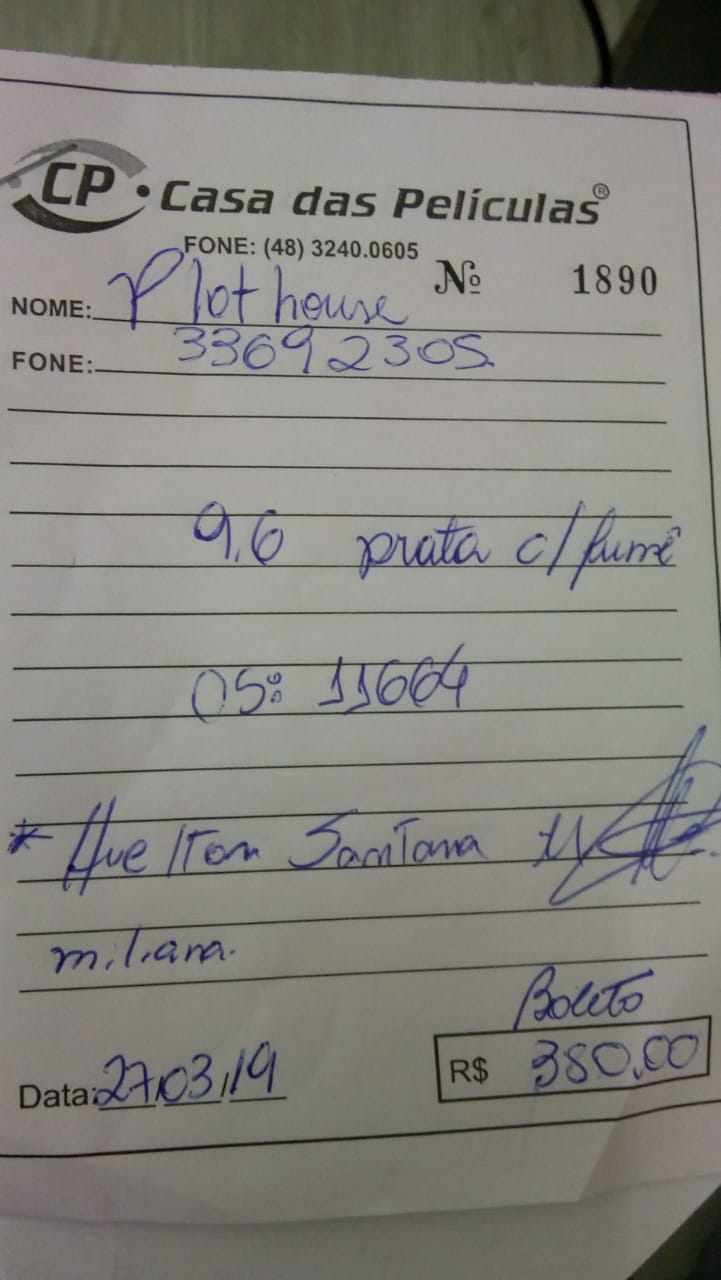 CP • Casa das Películas®
FONE: (48) 3240.0605
Nº 1890
NOME: Plothouse
FONE: 33692305
9,6 prata c/ fumê
OS: 11664
* Huelton Santana
milana.
Boleto
Data: 27/03/19 R$ 380,00